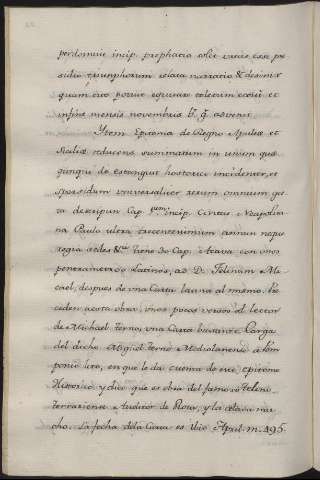 perdomuit incip. prophatio solet varie esse pre
sidio triumphorum celata narratio & desinit
quam cito potuit equitare toletum et
infine mensis novembris
Ytem Epitoma de Regno Apuliæ et
Siciliæ reducens summatim in unum que
cunque de estangue hostorici incidenter, et
sparsidum universaliter rerum omnium ges
ta descripsit Cap. incip. Civitas Neapolita
na Paulo ultra trecentesimum annum nepo
regia sedes Tiene 30 Cap. Acava con unos
penerametros Latinos, ad D. Felinum Mi
cael, despues de una Carta latina al mismo. Pre
ceden acosta obra, unos pocos versos al lector
de Michael ferno, una Carta bastante Larga
del dicho Miguel ferno Mediolanensis a Pom
ponio leto, en que le da cuenta de este epitome
Historico y dice que es obra del famoso Felino
ferrariense Auditor de Rota, y la alaba mu
cho. La fecha dela Carta es Apul. m. 495.